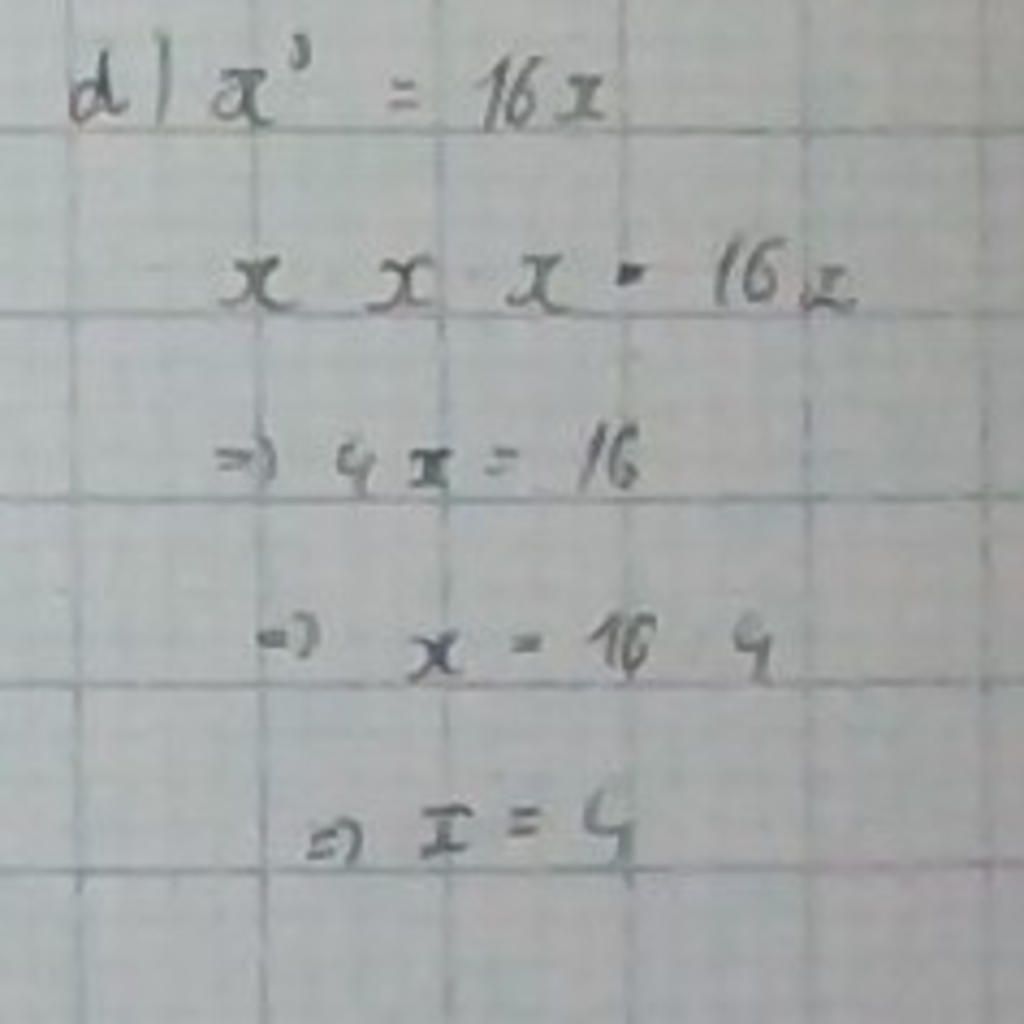 d) x³ = 16x
x x x = 16x
=> 4x = 16
=> x = 16 4
=> x = 4